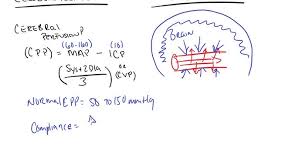 CEREBRAL
PERFUSION P
(60-160) (10)
(CPP) = MAP - ICP
(Sys+2Dia / 3) or (CVP)
BRAIN
NORMAL CPP = 50 TO 150 mmHg
Compliance = Δ